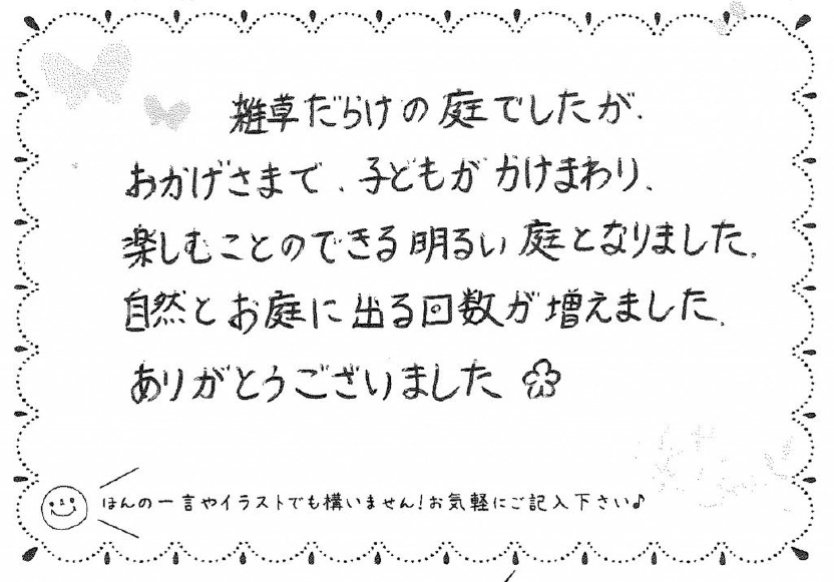 雑草だらけの庭でしたが、
おかげさまで、子どもがかけまわり、
楽しむことのできる明るい庭となりました。
自然とお庭に出る回数が増えました。
ありがとうございました
ほんの一言やイラストでも構いません!お気軽にご記入下さい♪